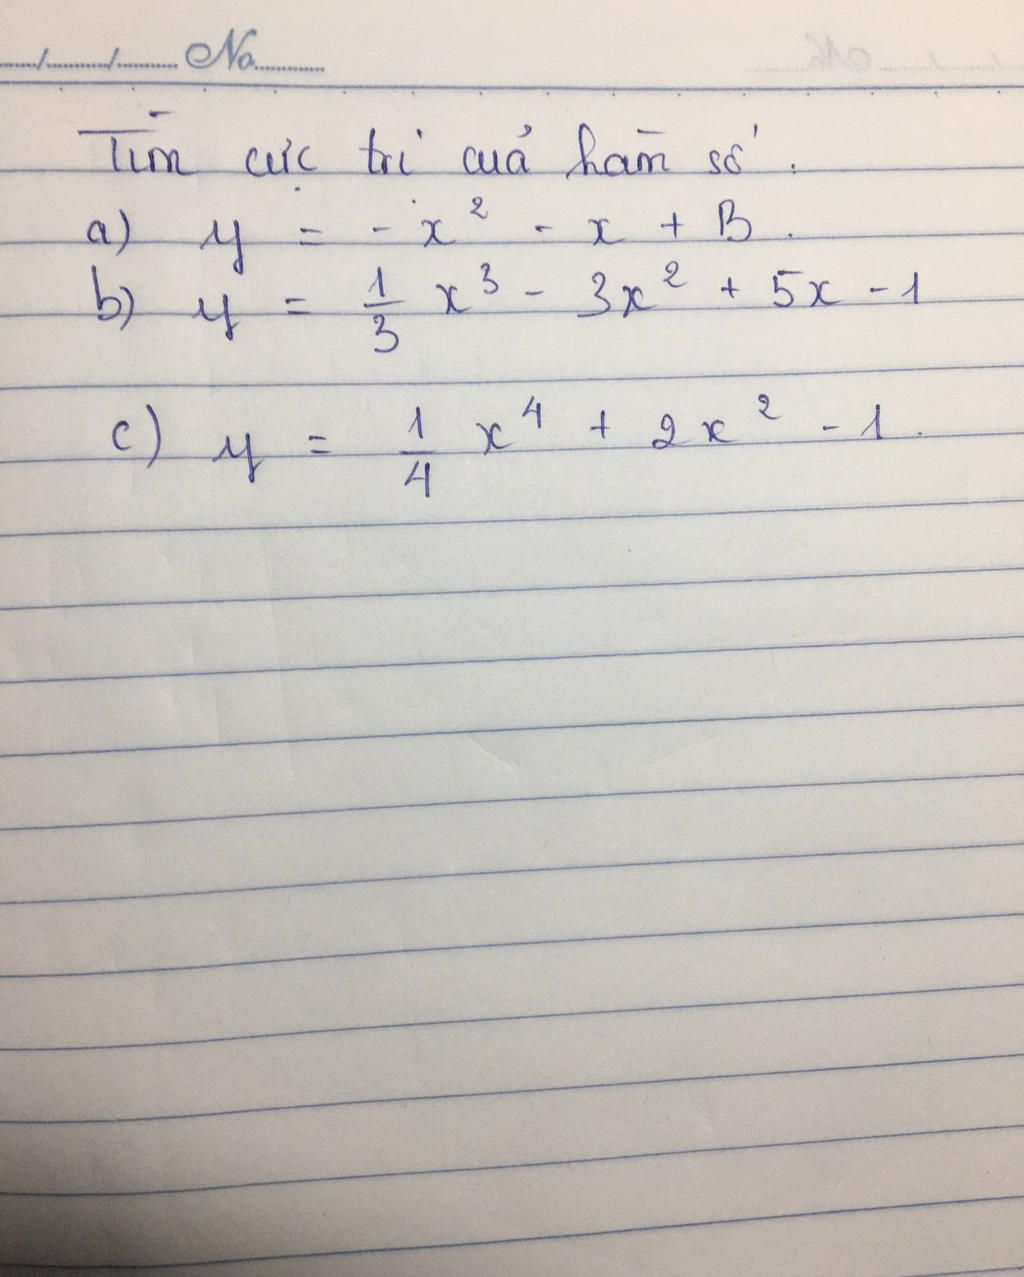 No
Tìm cực trị cuả hàm số.
a) y = - x² - x + B.
b) y = 1/3 x³ - 3x² + 5x - 1
c) y = 1/4 x⁴ + 2x² - 1.